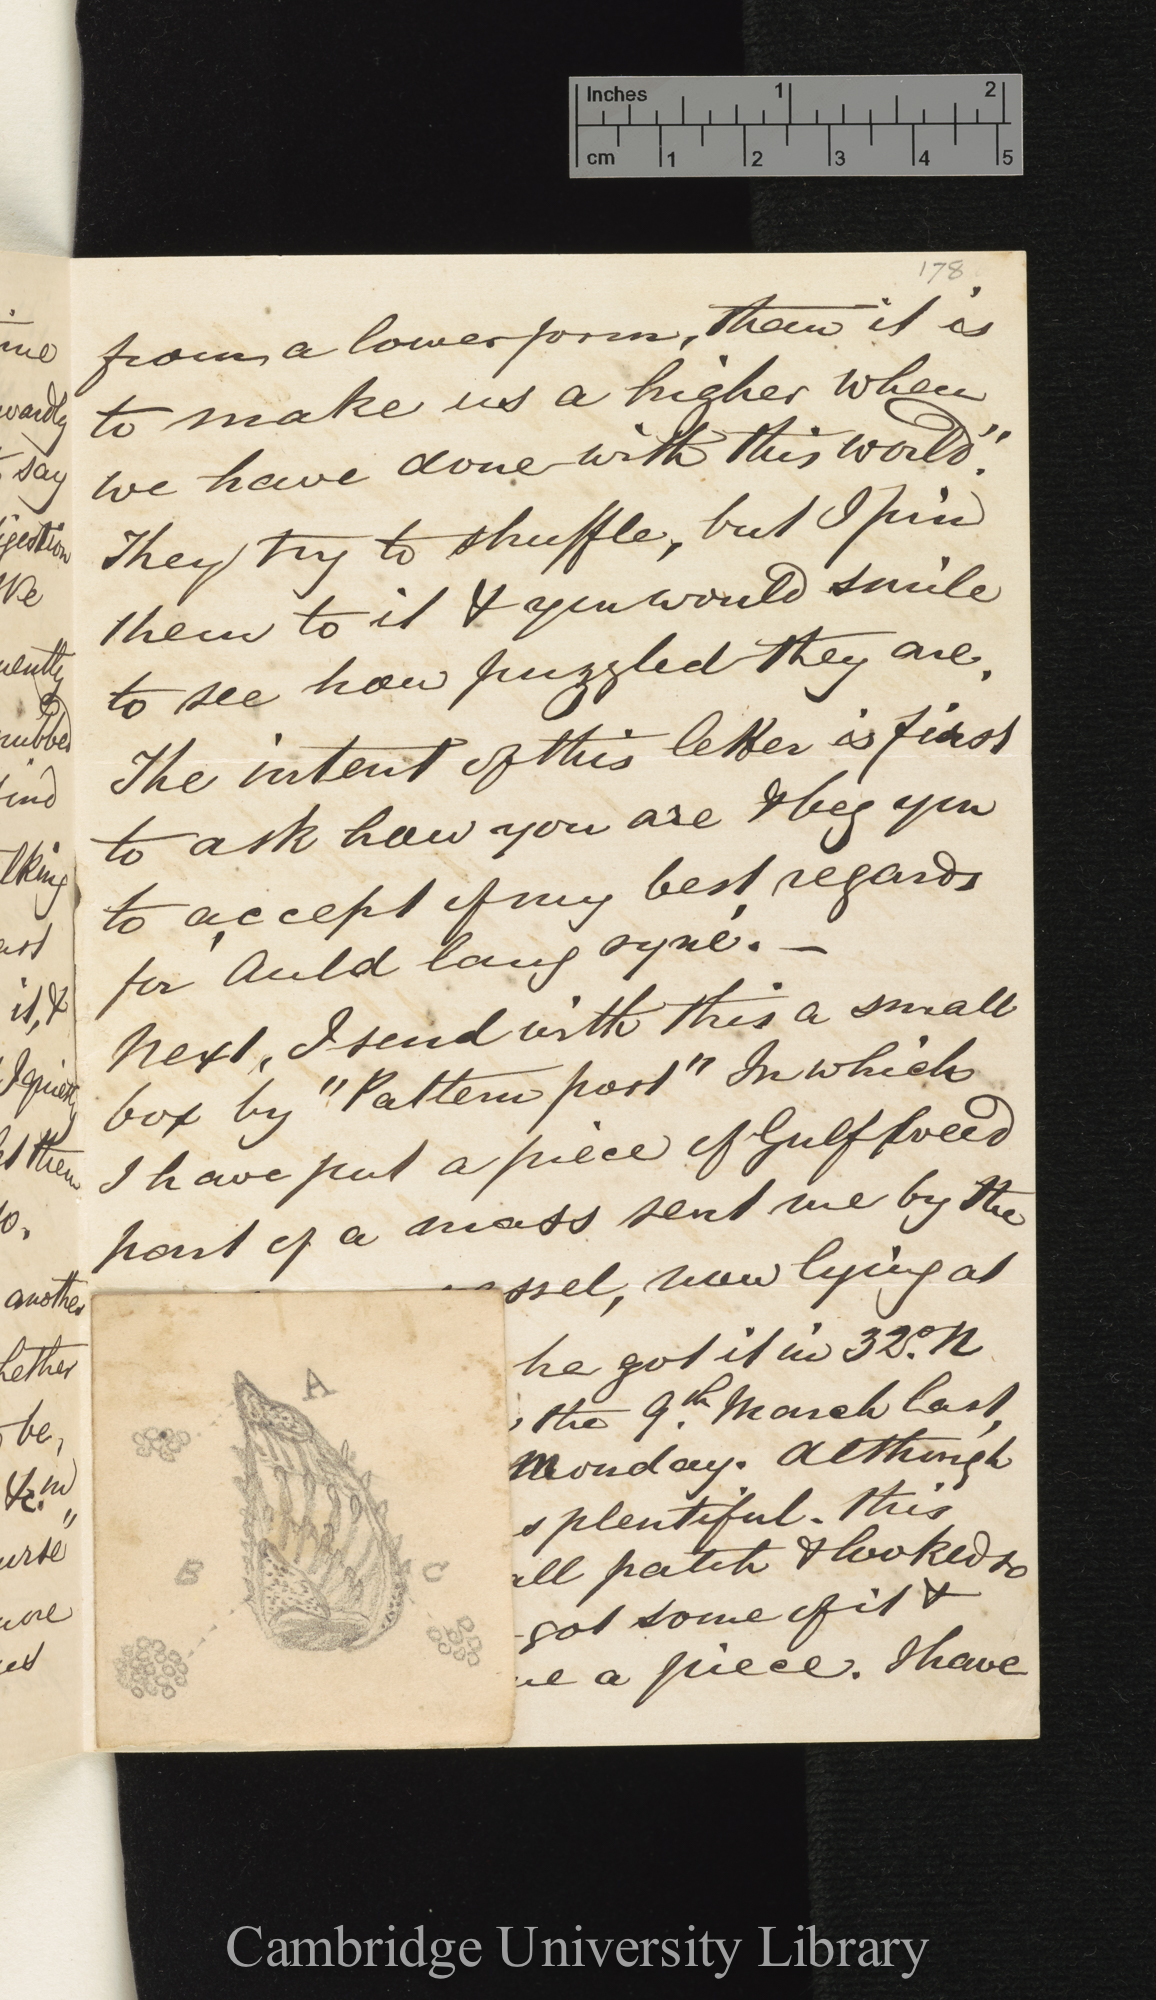 Inches 1 2
cm 1 2 3 4 5
178
from a lower form, than it is
to make us a higher when
we have done with this world".
They try to shuffle, but I pin
them to it & you would smile
to see how puzzled they are.
The intent of this letter is first
to ask how you are & beg you
to accept of my best regards
for 'Auld lang syne'. —
Next, I send with this a small
box by "Pattern post" In which
I have put a piece of Gulf weed
part of a mass sent me by the
essel, now lying at
he got it in 32°. N
the 9th. March last,
Monday. Although
s plentiful. this
all patch & looked so
got some of it &
a piece. I have
A
B
C
say
gestion
We
ently
ubbed
ind
lking
it, &
I quiet
them
another
hether
be,
&c.
urse"
ore
Cambridge University Library